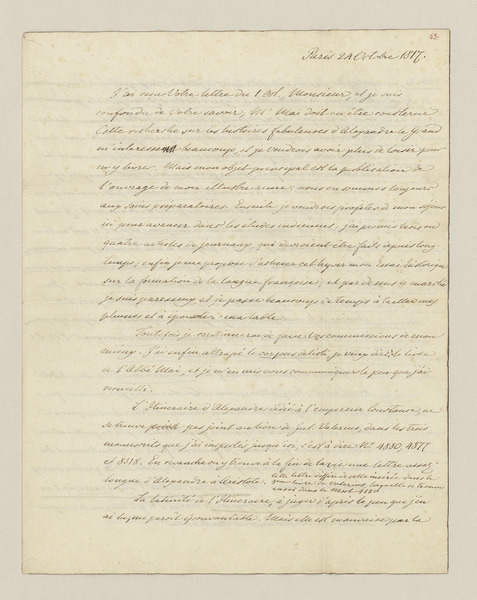 43.
Paris 24 Octobre 1817.
J'ai reçu Votre lettre du 1 Oct. Monsieur, et je suis
confondu de votre savoir, Mr Mai doit en être consterné
Cette recherche sur les histoires fabuleuses d'Alexandre le Grand
m'intéresse beaucoup, et je voudrois avoir plus de loisir pour
m'y livrer. Mais mon objet principal est la publication de
l'ouvrage de mon illustre amie: nous en sommes toujours
aux soins préparatoires. Ensuite je voudrois profiter de mon séjour
ici pour avancer dans les études indiennes; j'ai promis trois ou
quatre articles de journaux, qui devroient être faits depuis long
temps; enfin je me propose d'achever cet hyver mon Essai historique
sur la formation de la langue françoise, et par dessus le marché
je suis paresseux et je passe beaucoup de temps à tailler mes
plumes et à épousseter ma table.
Toutefois je continuerai de faire Vos commissions de mon
mieux. J'ai enfin attrapé le corpus delicti je veux dire le livre
de l'Abbé Mai, et je m'en vais vous communiquer le peu que j'ai
recueilli.
L'Itineraire d'Alexandre dédié à l'empereur Constance, ne
se trouve pas joint au livre de Jul. Valerius, dans les trois
manuscrits que j'ai inspectés jusqu'ici, c'est à dire Nr 4880, 4877
et 8518. En revanche on y trouve à la fin de la vie une lettre assez
longue d'Alexandre à Aristote.
cette lettre diffère de celle insérée dans le
livre de Valerius, laquelle se trouve
aussi dans le
La latinité de l'Itineraire, à juger d'après le peu que j'en
ai lu, me paroît épouvantable. Mais elle est mauvaise par la